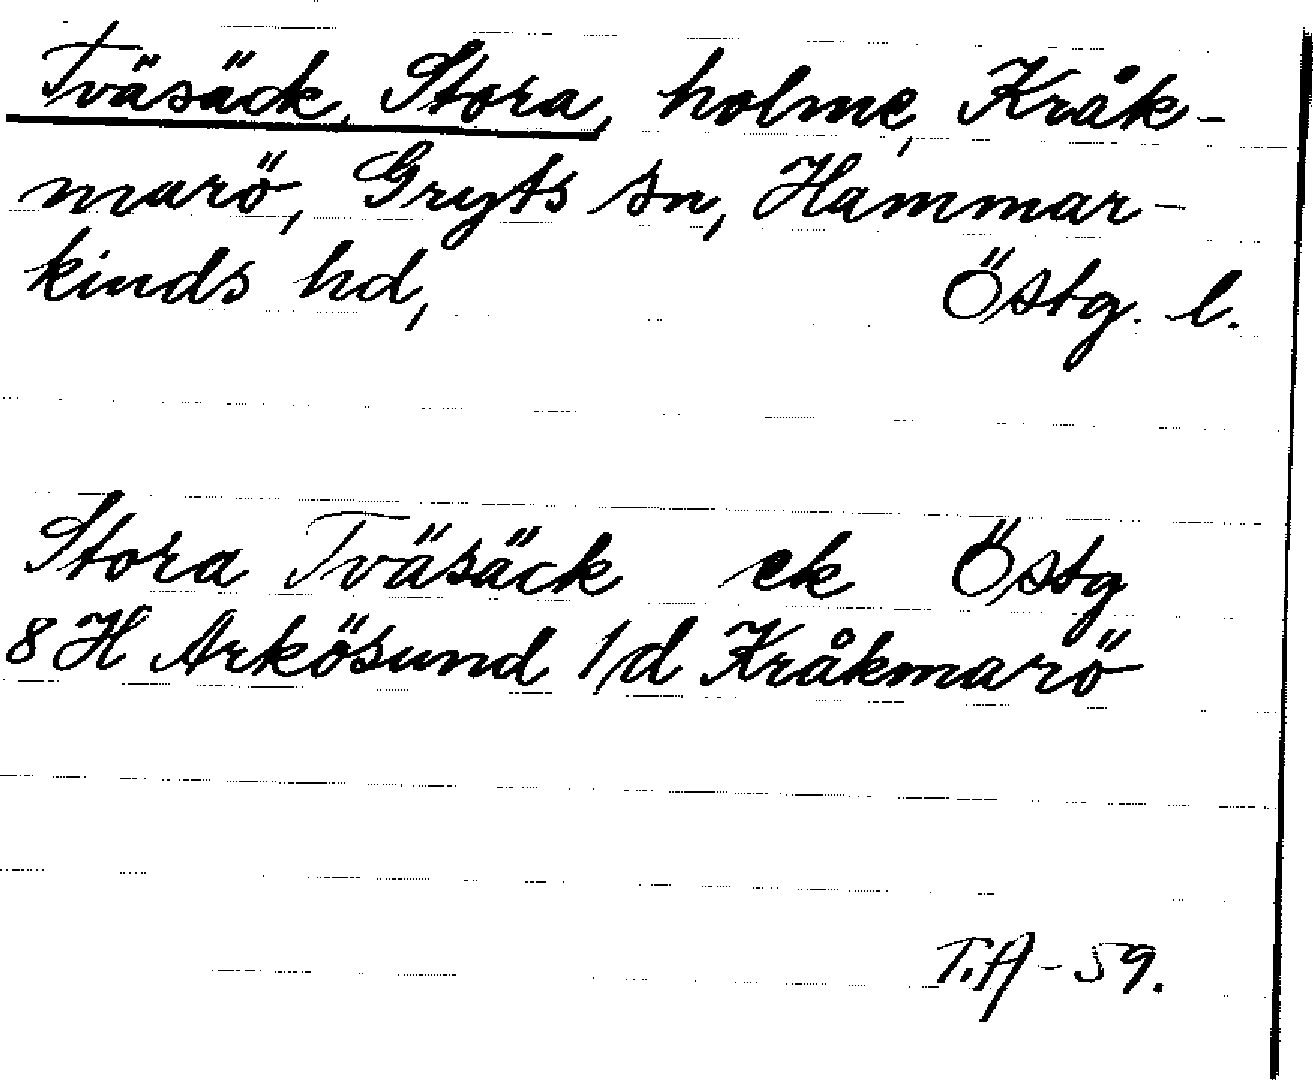 Tväsäck, Stora, holme, Kråk-
marö, Gryts sn, Hammar-
kinds hd, Östg. l.
Stora Tväsäck ek Östg
8H Arkösund 1/d Kråkmarö
T.A - 59.